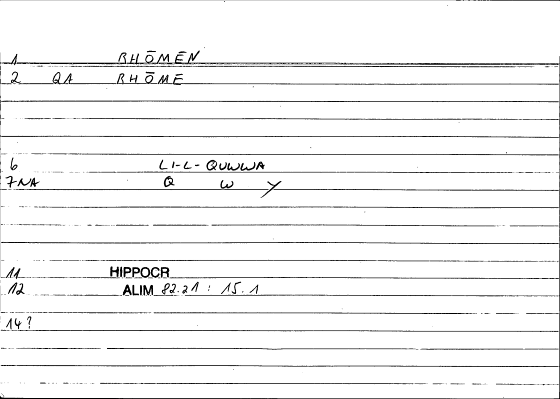 1 RHŌMEN
2 QA RHŌME
6 LI-L-QUWWA
7 NA Q W Y
11 HIPPOCR
12 ALIM 82.21 : 15.1
14?